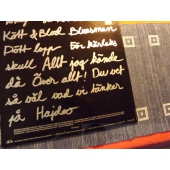 Kött & Blod Bluesman
Dött lopp För Kärleks
skull Allt jag kände
då Över allt! Du vet
så väl vad vi tänker
på Hajdeo